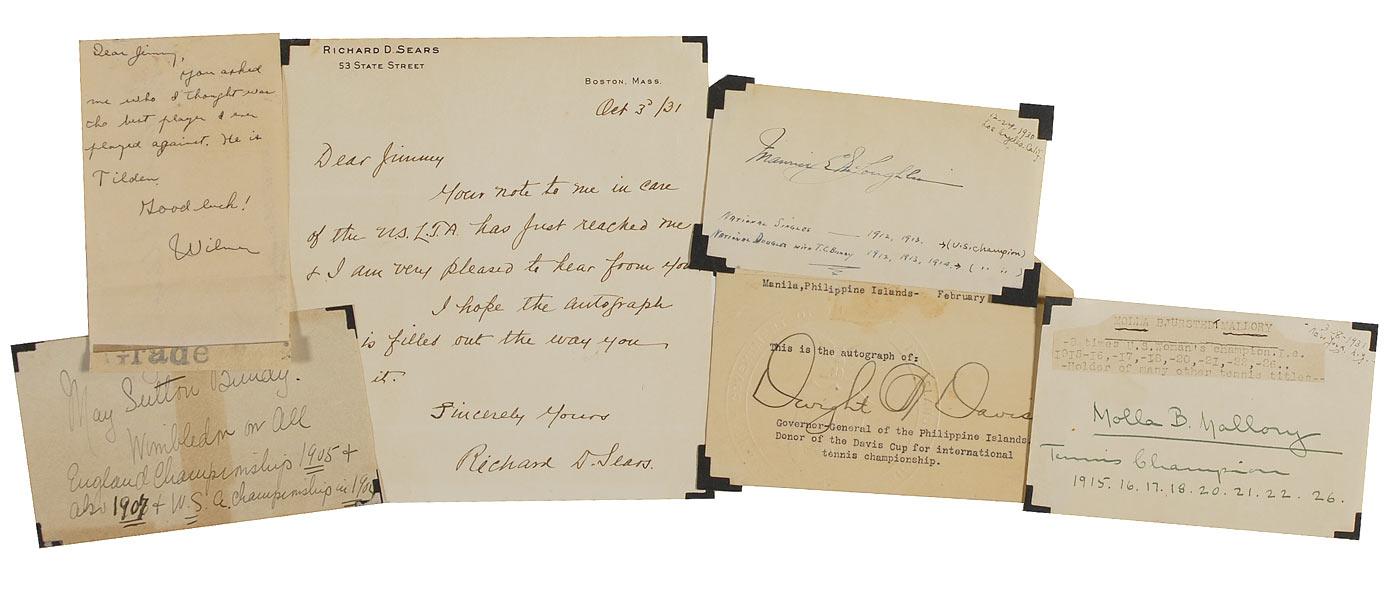 Dear Jimmy,
You asked
me who I thought was
the best player I ever
played against. He is
Tilden.
Good luck!
Wilmer
RICHARD D. SEARS
53 STATE STREET
BOSTON, MASS.
Oct 3ᵈ /31
Dear Jimmy
Your note to me in care
of the U.S.L.T.A. has just reached me
& I am very pleased to hear from you
I hope the autograph
is filled out the way you
it.
Sincerely Yours
Richard D. Sears.
12-24-1930
Los Angeles, Calif.
Maurice E. McLoughlin
National Singles — 1912, 1913. → (U.S. Champion)
National Doubles with T.C. Bundy 1912, 1913, 1914 → ( " " )
Grade
May Sutton Bundy.
Wimbledon or All
England Championship 1905 +
also 1907 + U.S. A. Championship in 190
Manila, Philippine Islands- February
This is the autograph of:
Dwight F Davis
Governor-General of the Philippine Islands
Donor of the Davis Cup for international
tennis championship.
MOLLA BJURSTEDT MALLORY
-8 times U.S. Woman's champion.i.e.
1915-16,-17,-18,-20,-21,-22,-26..
-Holder of many other tennis titles--
Molla B. Mallory
Tennis Champion
1915. 16. 17. 18. 20. 21. 22. 26.